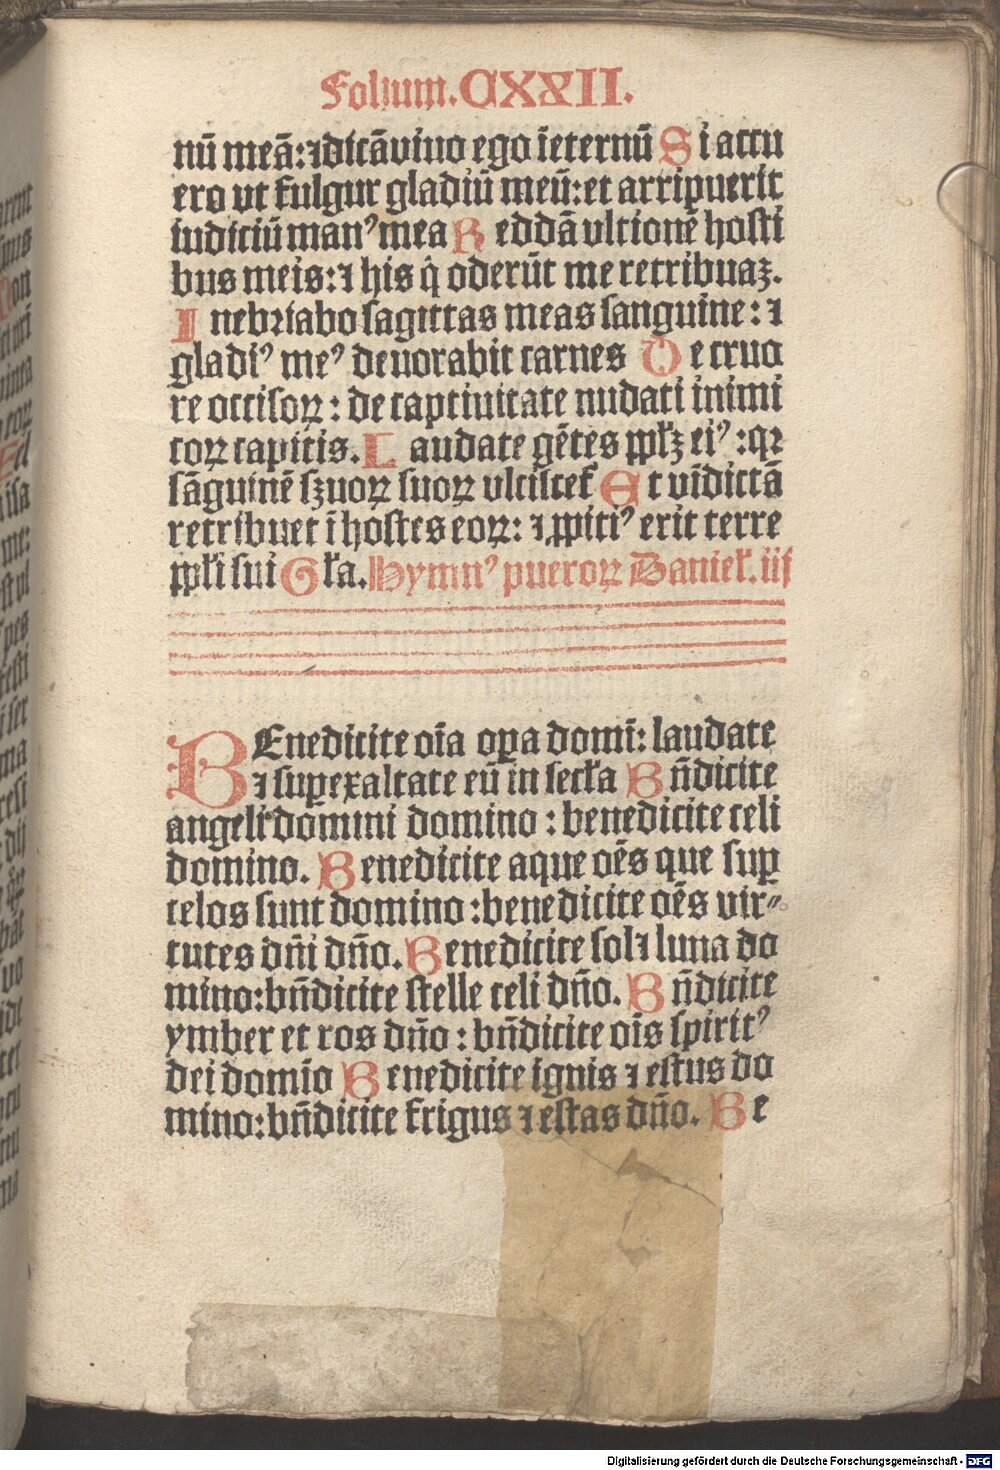 Folium. CXXII.
nū meā: ⁊ dicā vivo ego ī eternū Si accu
ero ut fulgur gladiū meū: et arripuerit
iudiciū manꝰ mea Reddā ultionē hosti
bus meis: ⁊ his q̄ oderūt me retribuaꝫ.
Inebriabo sagittas meas sanguine: ⁊
gladiꝰ meꝰ devorabit carnes De cruo
re occisoꝝ: de captivitate nudati inimi
coꝝ capitis. Laudate gētes pplꝫ eiꝰ: qꝛ
sāguinē sꝫuoꝝ suoꝝ ulciscet᷑ Et vīdictā
retribuet ī hostes eoꝝ: ⁊ ꝓpitiꝰ erit terre
ppli sui Gła. Hymnꝰ pueroꝝ Danieł. iij
BEnedicite oīa oꝑa domī: laudate
⁊ suꝑexaltate eū in secła Bn̄dicite
angeli domini domino: benedicite celi
domino. Benedicite aque oēs que suꝑ
celos sunt domino: benedicite oēs vir⸗
tutes dn̄i dn̄o. Benedicite sol ⁊ luna do
mino: bn̄dicite stelle celi dn̄o. Bn̄dicite
ymber et ros dn̄o: bn̄dicite oīs spiritꝰ
dei domīo Benedicite ignis ⁊ estus do
mino: bn̄dicite frigus ⁊ estas dn̄o. Be
Digitalisierung gefördert durch die Deutsche Forschungsgemeinschaft - DFG